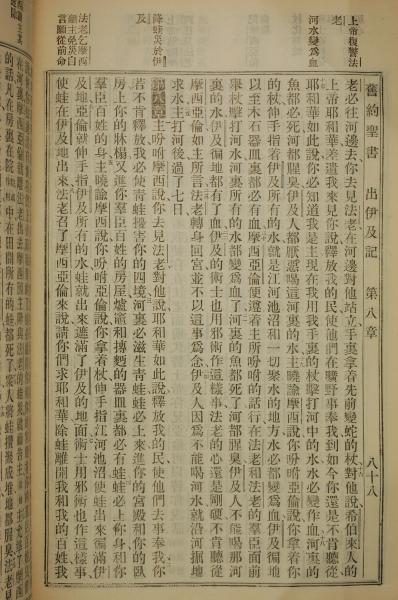 舊約聖書　出伊及記　第八章　八十八
上帝復警法老
河水變為血
降蛙災於伊及
法老乞摩西籲主免災自言願從前命
老必往河邊去你去見法老在河邊對他站立手裏拿着先前變蛇的杖對他說希伯來人的
上帝耶和華差遣我來見你說釋放我的民使他們在曠野事奉我到如今你還是不肯聽從
耶和華如此說你必知道我是主現在我用我手裏的杖擊打河中的水水必變作血河裏的
魚都必死河都腥臭伊及人都厭惡喝這河裏的水主曉諭摩西說你吩咐亞倫說你拿着你
的杖伸手指着伊及所有的水就是江河池沼和一切聚水的地方水必都變為血伊及徧地
以至木石器皿裏都必有血摩西亞倫便遵着主所吩咐的話行在法老和法老的羣臣面前
舉杖擊打河水河裏所有的水都變為血了河裏的魚都死了河都腥臭伊及人不能喝那河
裏的水伊及徧地都有了血伊及的術士也用邪術作這樣事法老的心還是剛硬不肯聽從
摩西亞倫如主所言法老轉身回宮並不以這事爲念伊及人因爲不能喝河水就沿河掘地
求水主打河水後過了七日
第八章主吩咐摩西說你去見法老對他說耶和華如此說釋放我的民使他們去事奉我你
若不肯釋放我必使青蛙擾害你的四境河裏必滋生青蛙蛙必上來進你的宮殿和你的臥
房上你的牀榻又進你羣臣百姓的房屋爐竈和摶麪的器皿裏都必有蛙蛙必上你身和你
羣臣百姓的身主曉諭摩西說你吩咐亞倫說你拿着杖伸手指江河池沼使蛙出來徧滿伊
及地亞倫就伸手指伊及所有的水蛙就出來遮滿了伊及的地面術士用邪術也作這樣事
使蛙在伊及地出來法老召了摩西亞倫來說請你們求耶和華除蛙離開我和我的百姓我